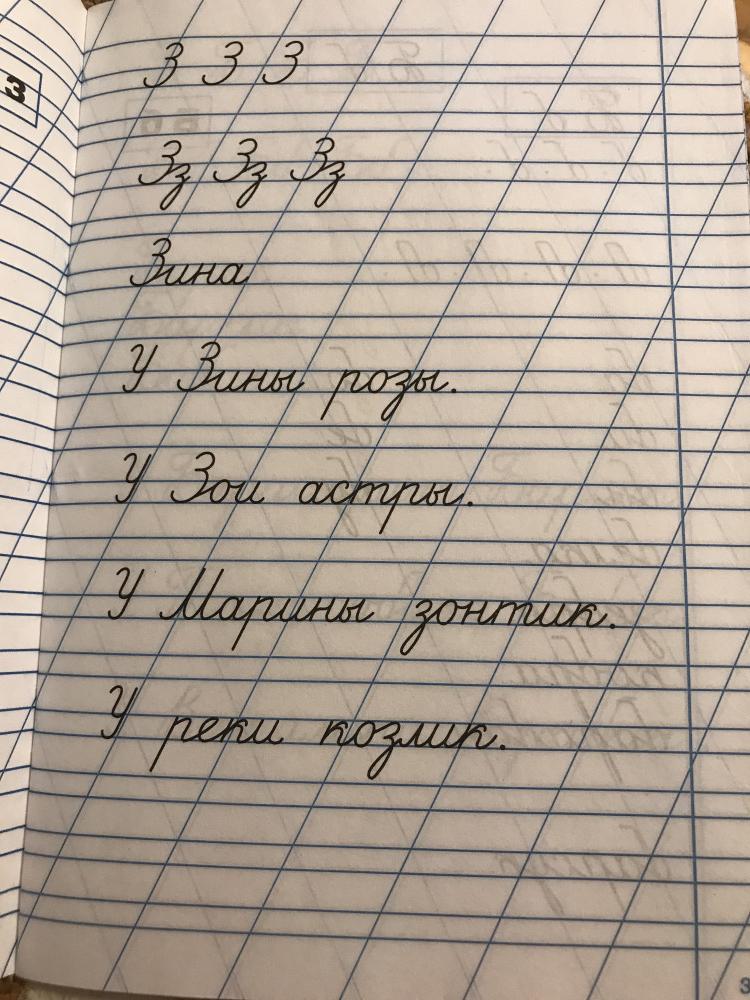 З З З
Зз Зз Зз
Зина
У Зины розы.
У Зои астры.
У Марины зонтик.
У реки козлик.
з
3